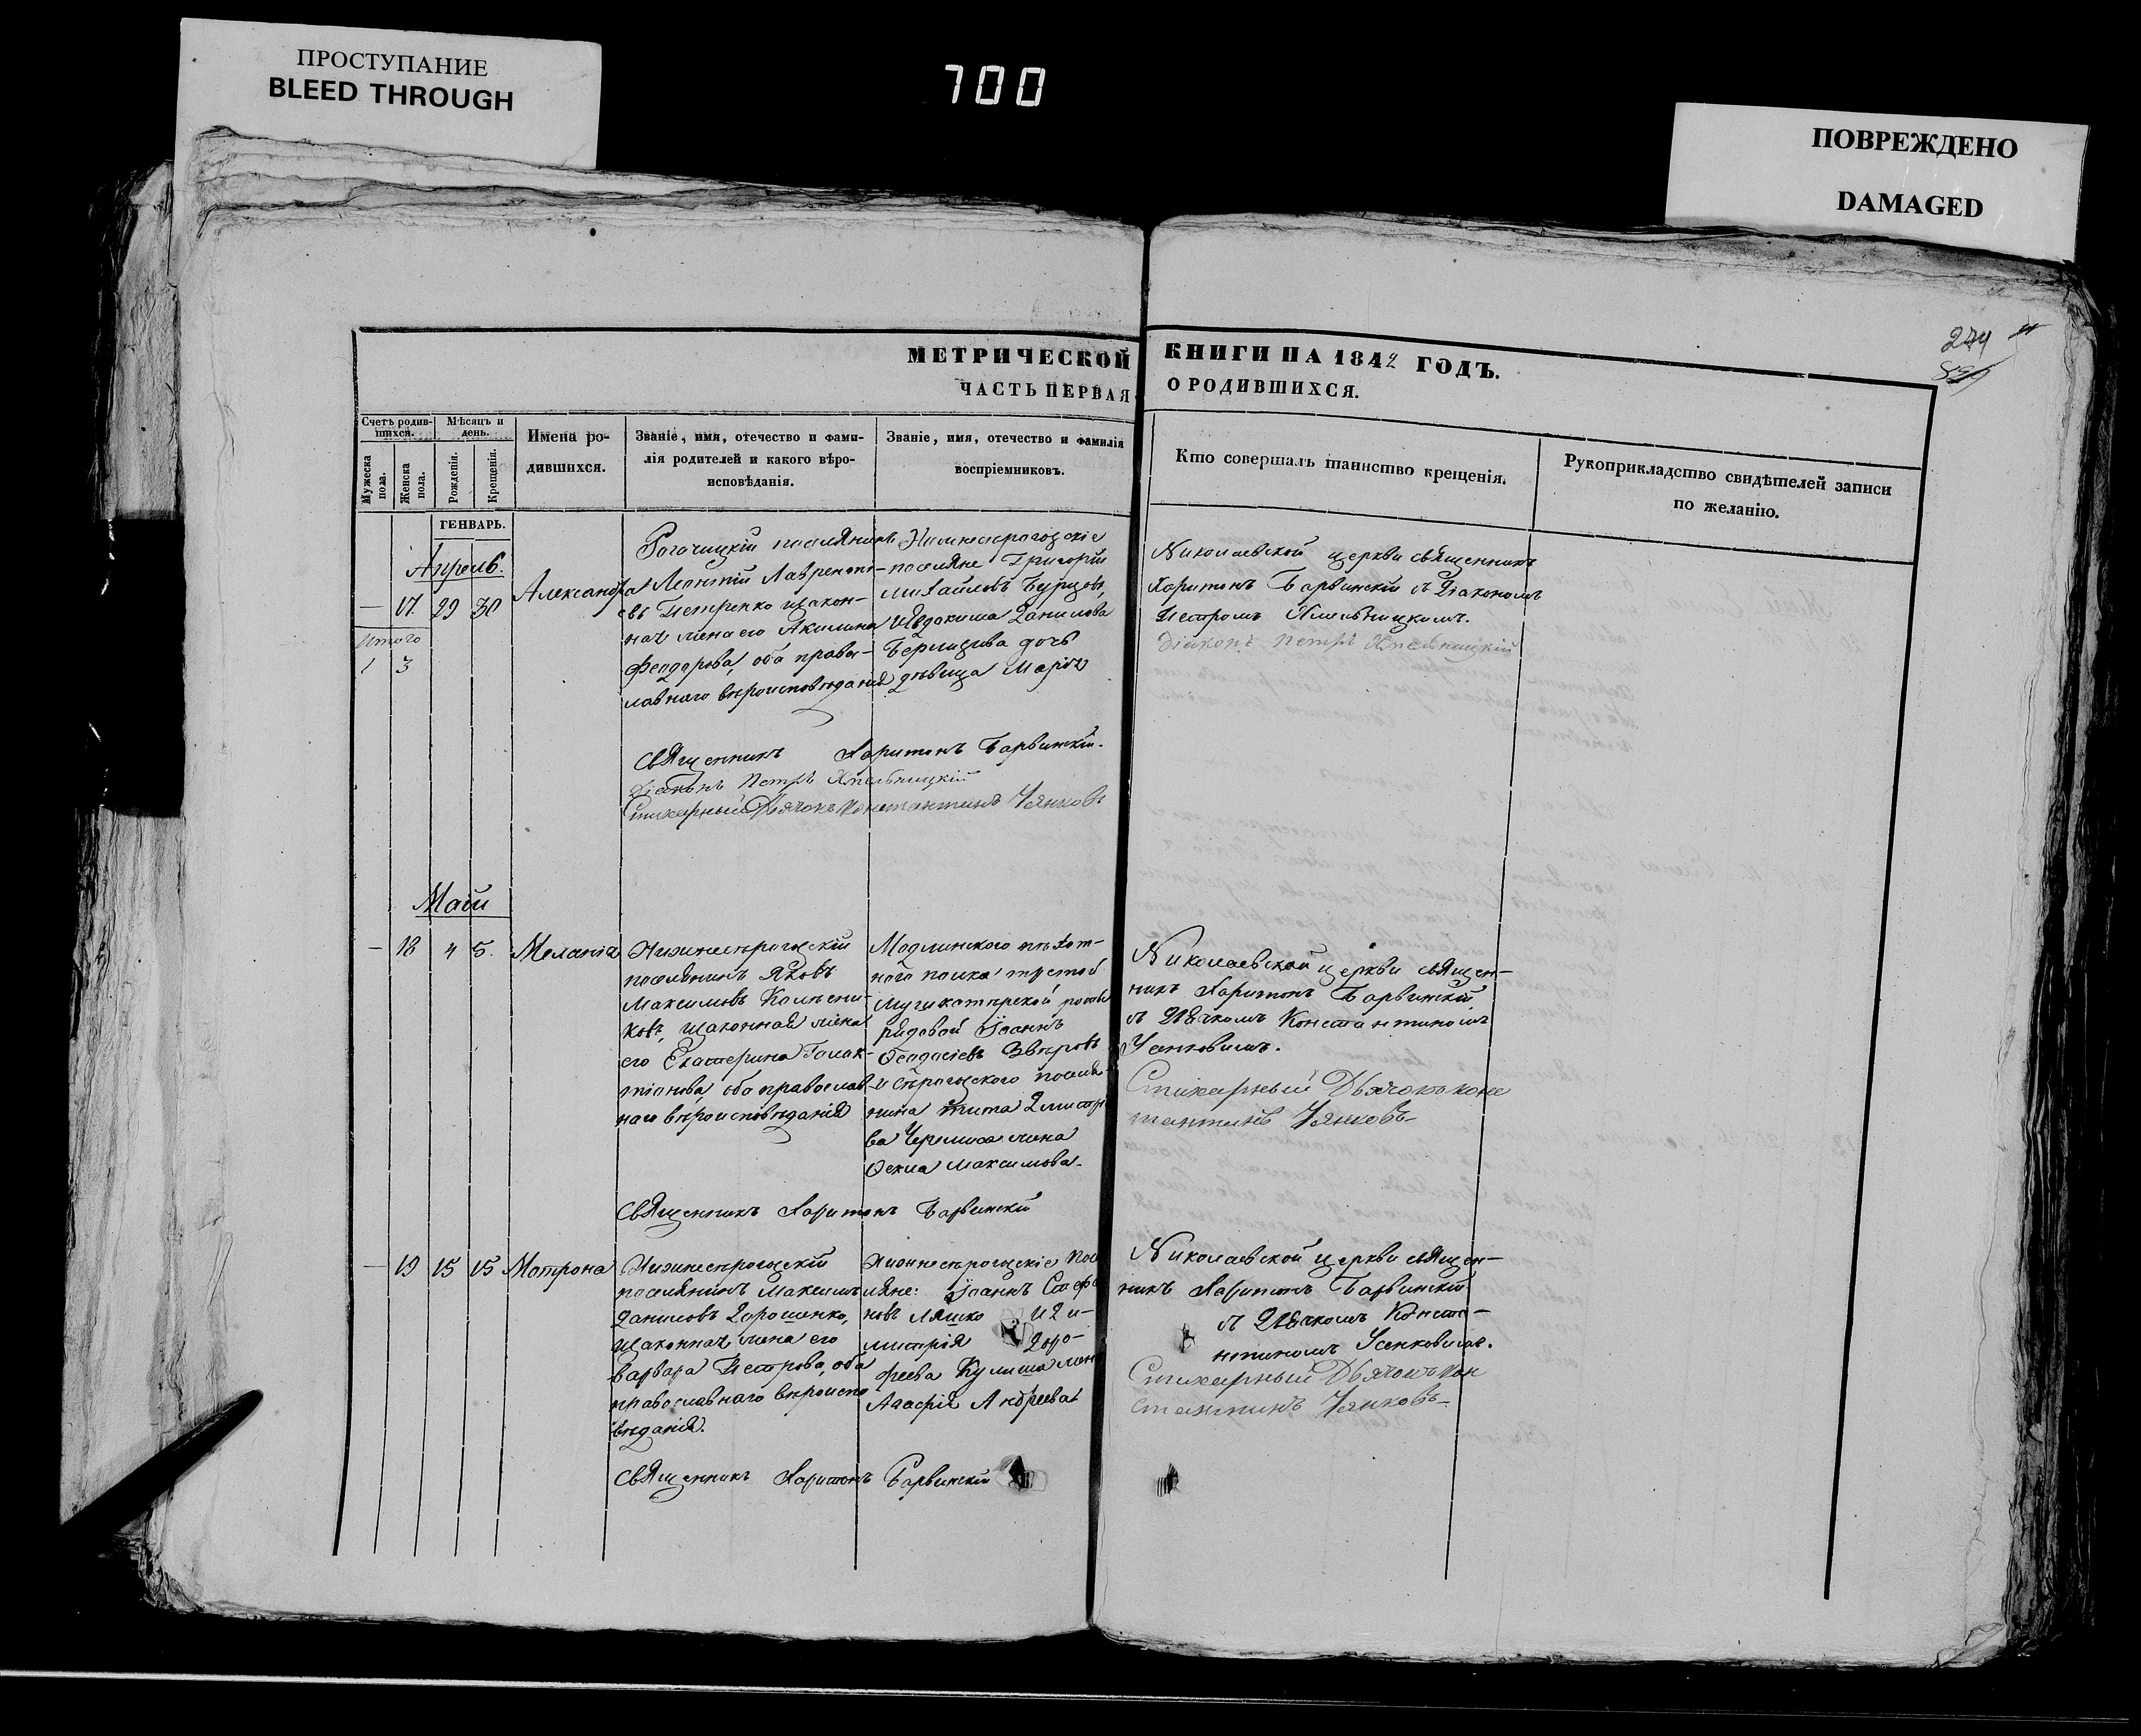 ПРОСТУПАНИЕ
BLEED THROUGH
700
ПОВРЕЖДЕНО
DAMAGED
274
МЕТРИЧЕСКОЙ КНИГИ НА 1842 ГОДЪ.
ЧАСТЬ ПЕРВАЯ О РОДИВШИХСЯ.
Счетъ родившихся.
Мужеска пола.
Женска пола.
Мѣсяцъ и день.
Рожденія.
Крещенія.
Имена родившихся.
Званіе, имя, отечество и фами-
лія родителей и какого вѣро-
исповѣданія.
Званіе, имя, отечество и фамилія
воспріемниковъ.
Кто совершалъ таинство крещенія.
Рукоприкладство свидѣтелей записи
по желанію.
ГЕНВАРЬ.
Апрель.
— 17 29 30
Итого
1 3
Александра
Рогачицкій поселянинъ
Леонтій Лавренті-
евъ Петренко и закон-
ная жена его Акилина
Феодорова, оба право-
лавнаго вѣроисповѣданія
поселяне Григорій
Михайловъ Бурцовъ,
и Евдокима Данилова
дочь
дѣвица Марія
Николаевской церкви священникъ
Харитонъ Барвинскій съ Діакономъ
Петромъ Хмельницкимъ.
Діаконъ Петръ Хмельницкій
Священникъ Харитонъ Барвинскій.
Діаконъ Петръ Хмельницкій
Стихарный Дьячокъ Константинъ
Маій
— 18 4 5.
Меланія
Нижнесѣрогозскій
поселянинъ Яковъ
Максимовъ Колесни-
ковъ, и законная жена
его Екатерина Галак-
тіонова, оба православ-
наго вѣроисповѣданія
Модлинского пѣхот-
ного полка третой
Мушкатерской роты
рядовой Іоаннъ
Феодосіевъ Звѣревъ
и сѣрогозского поселя-
нина Тита Дмитрі
ва жена
Фекла Максимова.
Николаевской церкви священ-
никъ Харитонъ Барвинскій
съ Дьячкомъ Константиномъ
Усенковымъ.
Стихарный Дьячокъ Конс
тантинъ
Священникъ Харитонъ Барвинскій
— 19 15 15
Мотрона
Нижнесѣрогозскій
поселянинъ Максимъ
Даниловъ Дорошенко,
и законная жена его
Варвара Петрова, оба
православнаго вѣроиспо
вѣданія.
Нижнесѣрогозскіе посе
ляне: Іоаннъ Стефа
новъ Ляшко и Ди-
митрія Доро-
феева Кулиша жен
Агафія Андреева
Николаевской церкви священ-
никъ Харитонъ Барвинскій
съ Дьячкомъ Конста-
нтиномъ Усенковымъ.
Стихарный Дьячокъ Кон
стантинъ
Священникъ Харитонъ Барвинскій